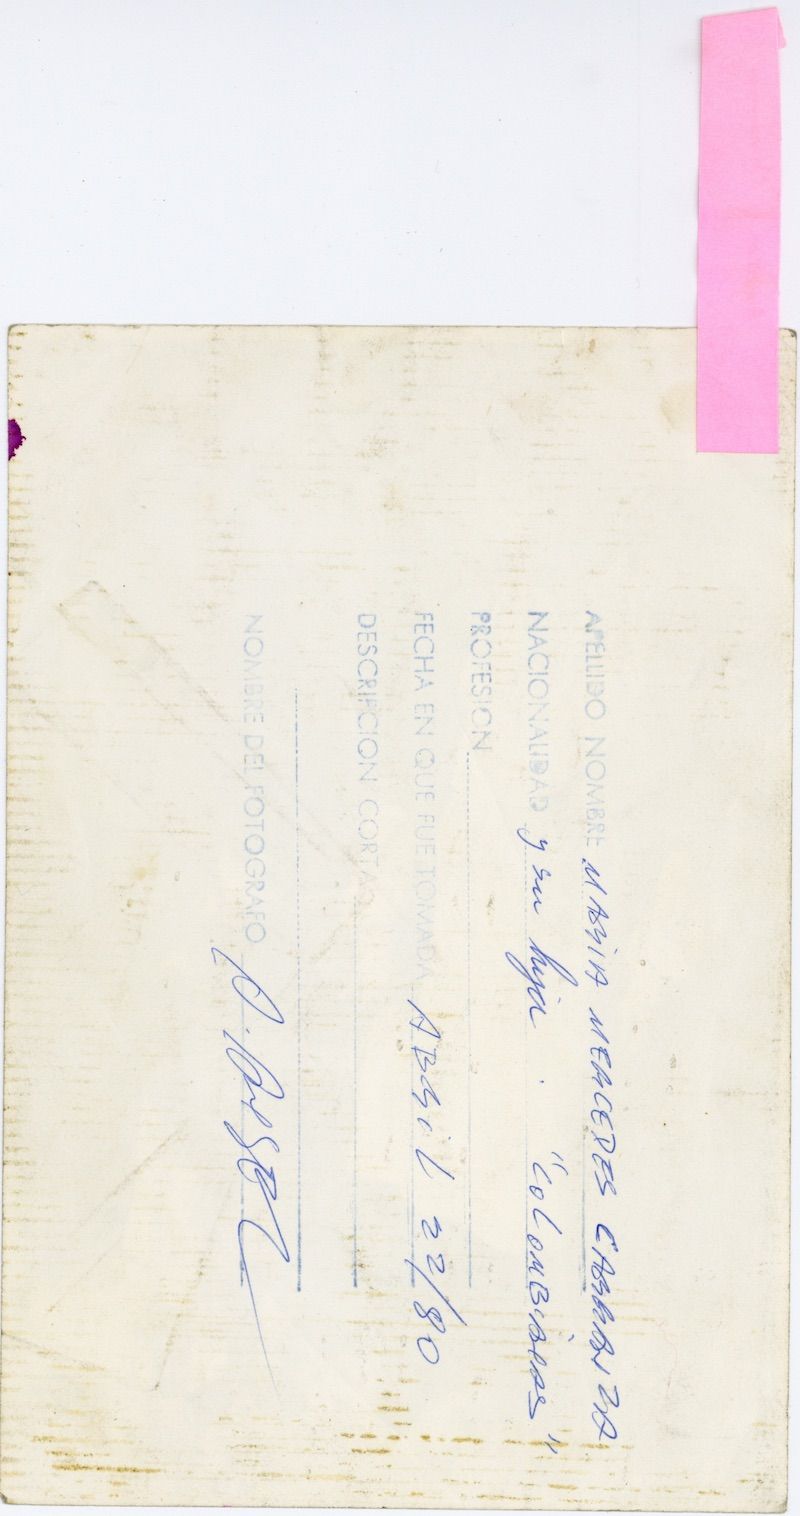 APELLIDO NOMBRE MARIA MERCEDES CARRANZA
NACIONALIDAD y su hija. "COLOMBIANAS"
PROFESION
FECHA EN QUE FUE TOMADA ABRIL 22/80
DESCRIPCION CORTA
NOMBRE DEL FOTOGRAFO